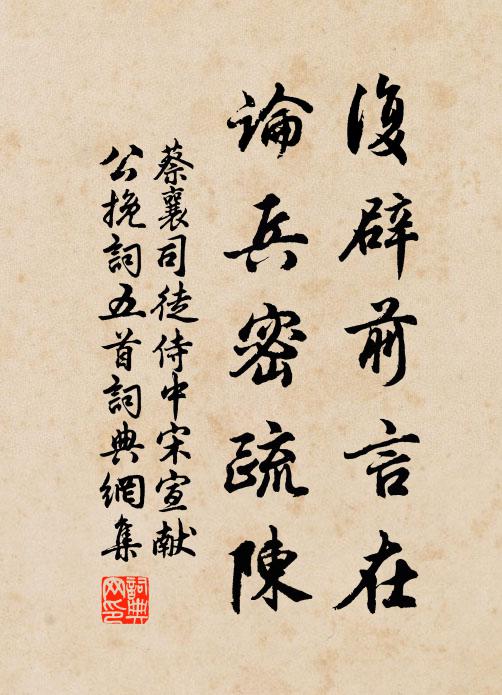 復辟前言在
論兵密疏陳
蔡襄司徒侍中宋宣献
公挽詞五首詞典網集
詞典網印